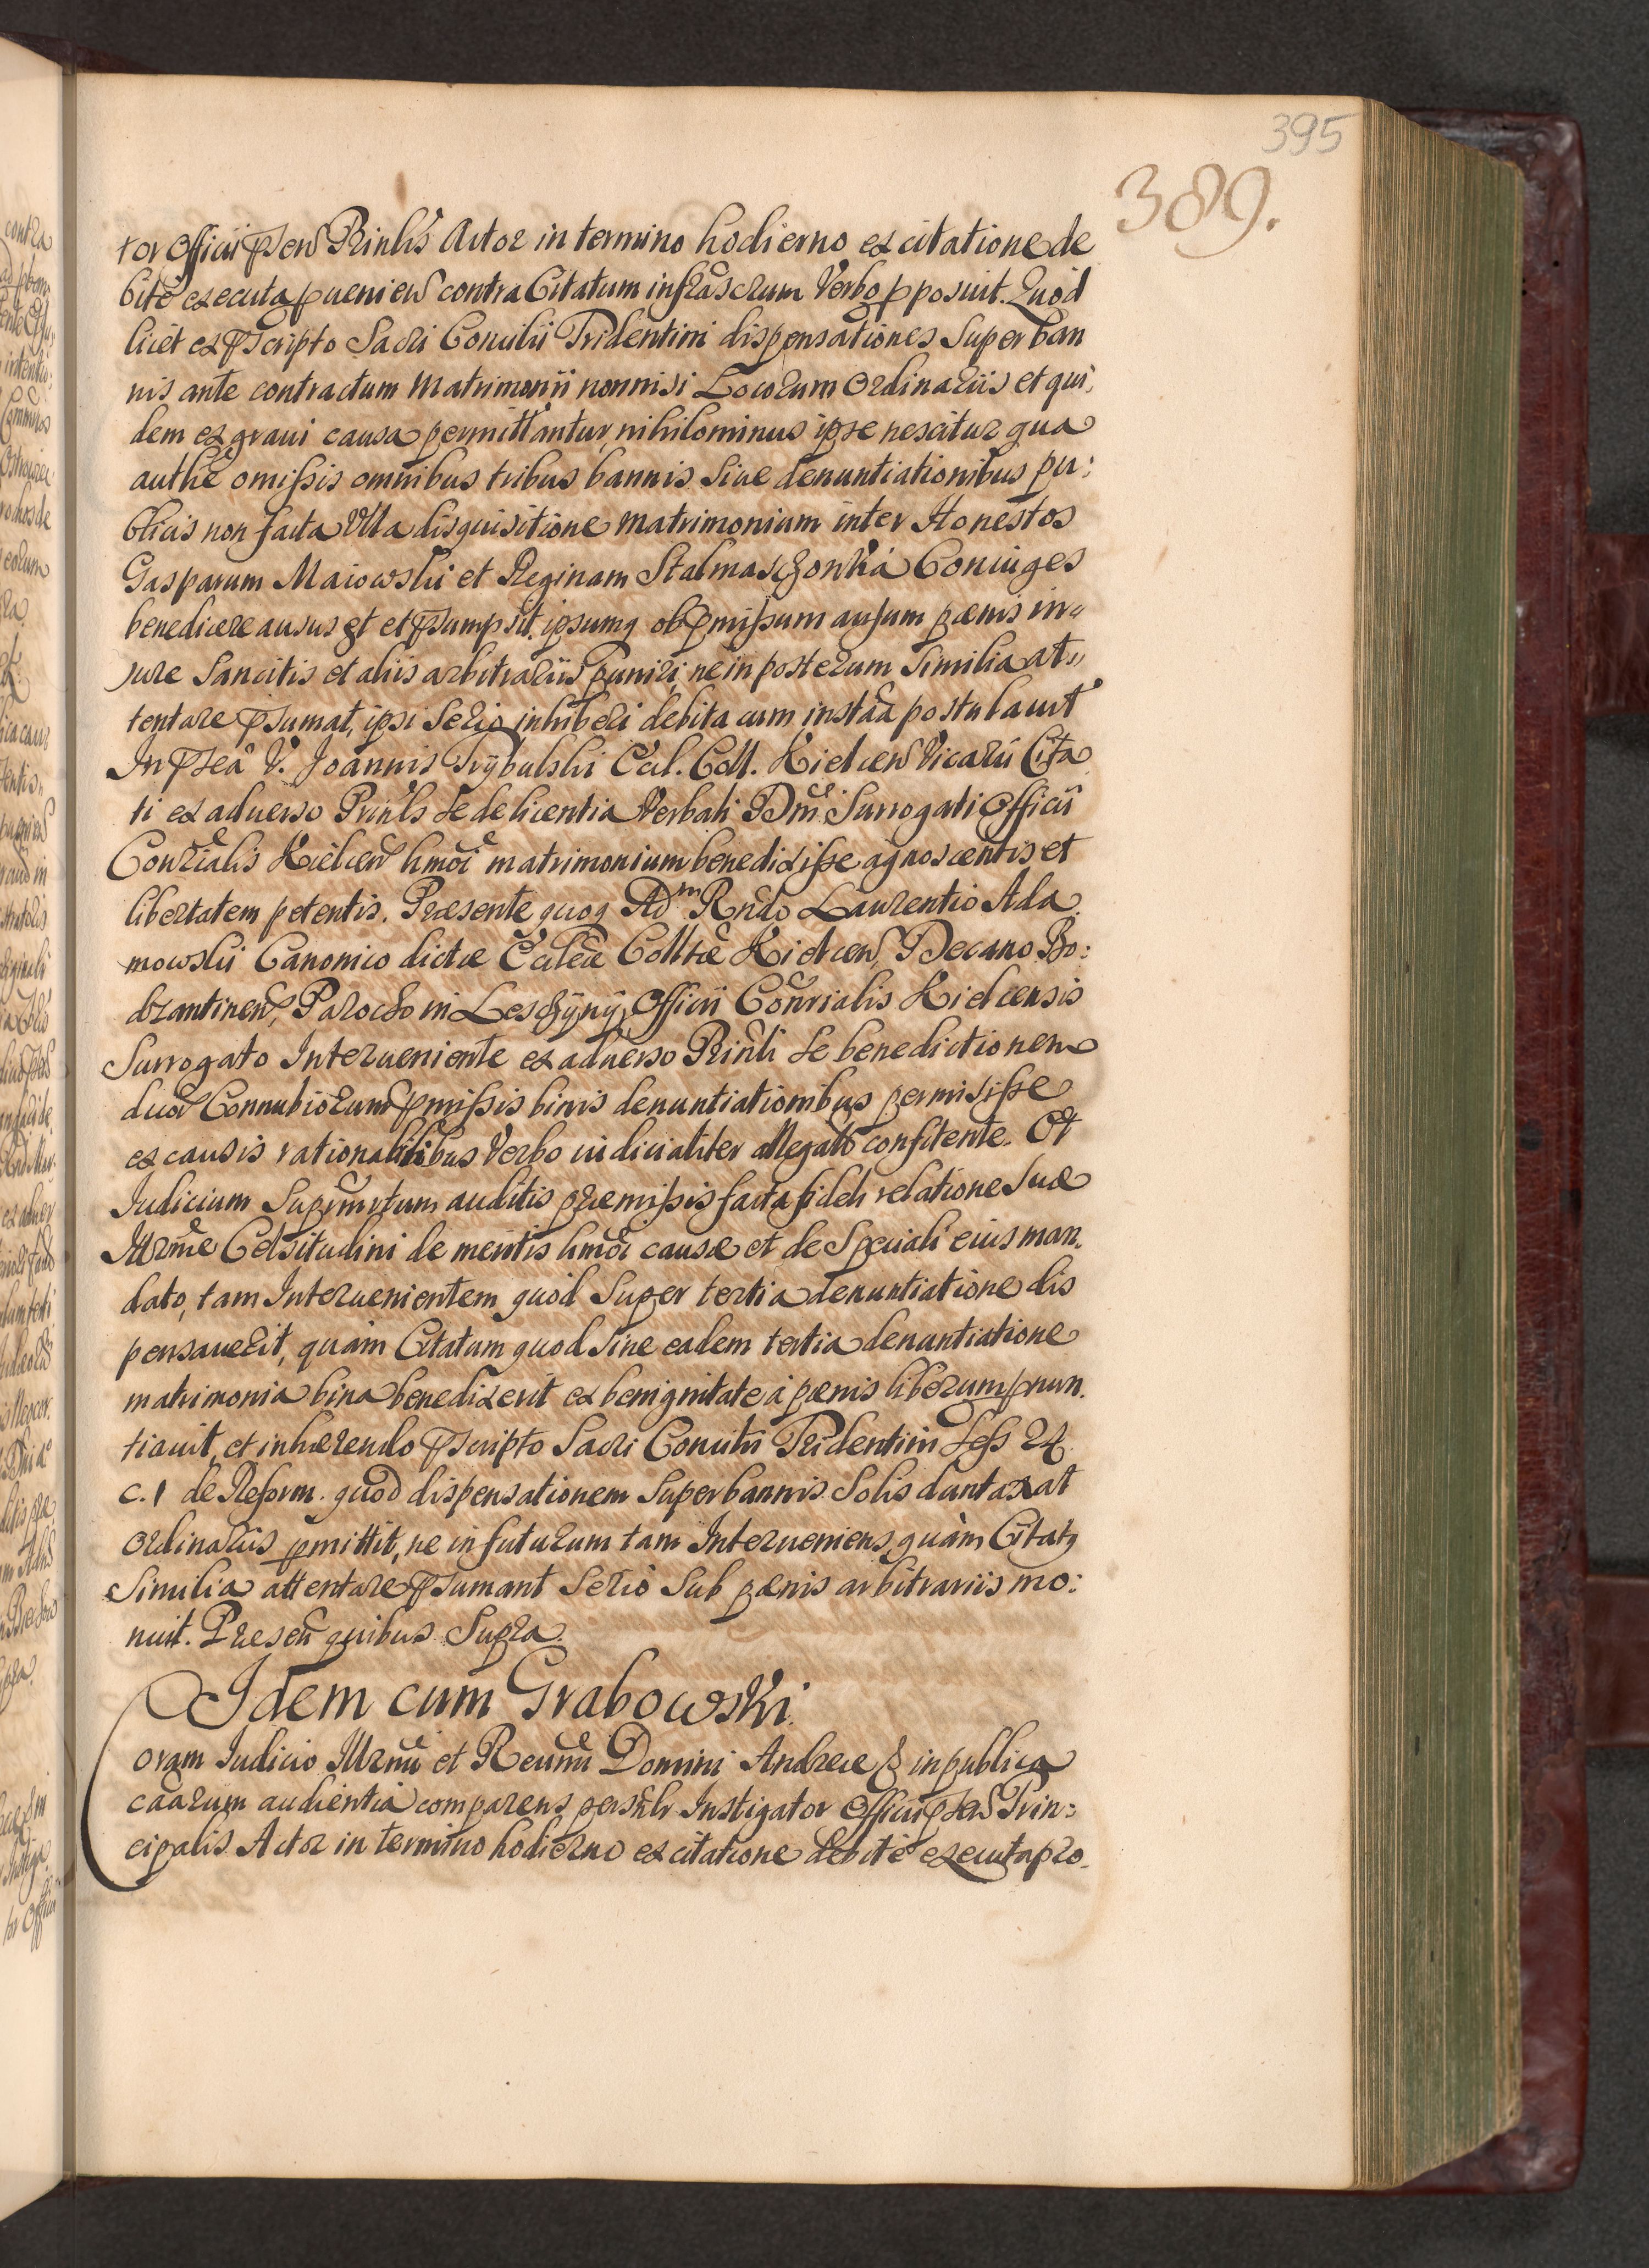 395
389.
tor Officii pñsen Prinlis Actor in termino hodierno ex citatione de
bitè executa pueniens contra Citatum infrãscrum Verbo pposuit. Quod
licet ex pscripto Sacri Concilii Tridentini dispensationes super ban
nis ante contractum Matrimonii nonnisi Locorum Ordinariis et qui,
dem ex graui causa permittantur, nihilominus ipse nescitur qua
authẽ omissis omnibus tribus bannis siue denuntiationibus pu:
blicis non facta Vlla disquisitione matrimonium inter Honestos
Gasparum Maiowski et Reginam Stalmaszonka Coniuges
benedicere ausus est et psumpsit, ipsumq ob pmissum ausum pœnis in
iure Sancitis et aliis arbitrariis puniri, ne in posterum similia at„
tentare psumat, ipsi serio inhiberi debita cum instãa postulauit
In pñseã V. Joannis Trybulski Eccl. Coll. Kielcen Vicarii Cita
ti ex aduerso Prinlr se de licentia Verbali Dñi Surrogati Officii
Conrialis Kielcen hmõi matrimonium benedixisse agnoscentis et
libertatem petentis. Præsente quoq Adm Rñdo Laurentio Ada
mowski Canonico dictæ Ecclæ Colltæ Kielcen, Decano Bo:
dzantinen, Parocho in Leszczyny, Officii Conrialis Kielcensis
Surrogato Interueniente ex aduerso Prinli se benedictionem
duor Connubiorum pmissis binis denuntiationibus permisisse
ex causis rationabilibus Verbo iudicialiter allegatis confitente. Et
Iudicium suprmrtum auditis præmissis facta fideli relatione Suæ
Illrmæ Celsitudini de meritis hmõi causæ et de Speciali eius man,
dato, tam Interuenientem quod super tertia denuntiatione dis
pensauerit, quàm Citatum quod sine eadem tertia denuntiatione
matrimonia bina benedixerit ex benignitate à pœnis liberum pnun,
tiauit, et inhærendo pscripto Sacri Concilii Tridentini Sess 24
c. 1 de Reform. quod dispensationem super bannis Solis duntaxat
ordinariis pmittit, ne in futurum tam Interueniens quàm Citatq
similia attentare psumant seriò sub pœnis arbitrariis mo:
nuit. Præsen quibus Supra.
Idem cum Grabowski.
Coram Iudicio Illrmi et Reumi Domini Andreæ & in publica
cãarum audientia comparens persñlr Instigator Officii pñsen Prin:
cipalis Actor in termino hodierno ex citatione debitè executa pro